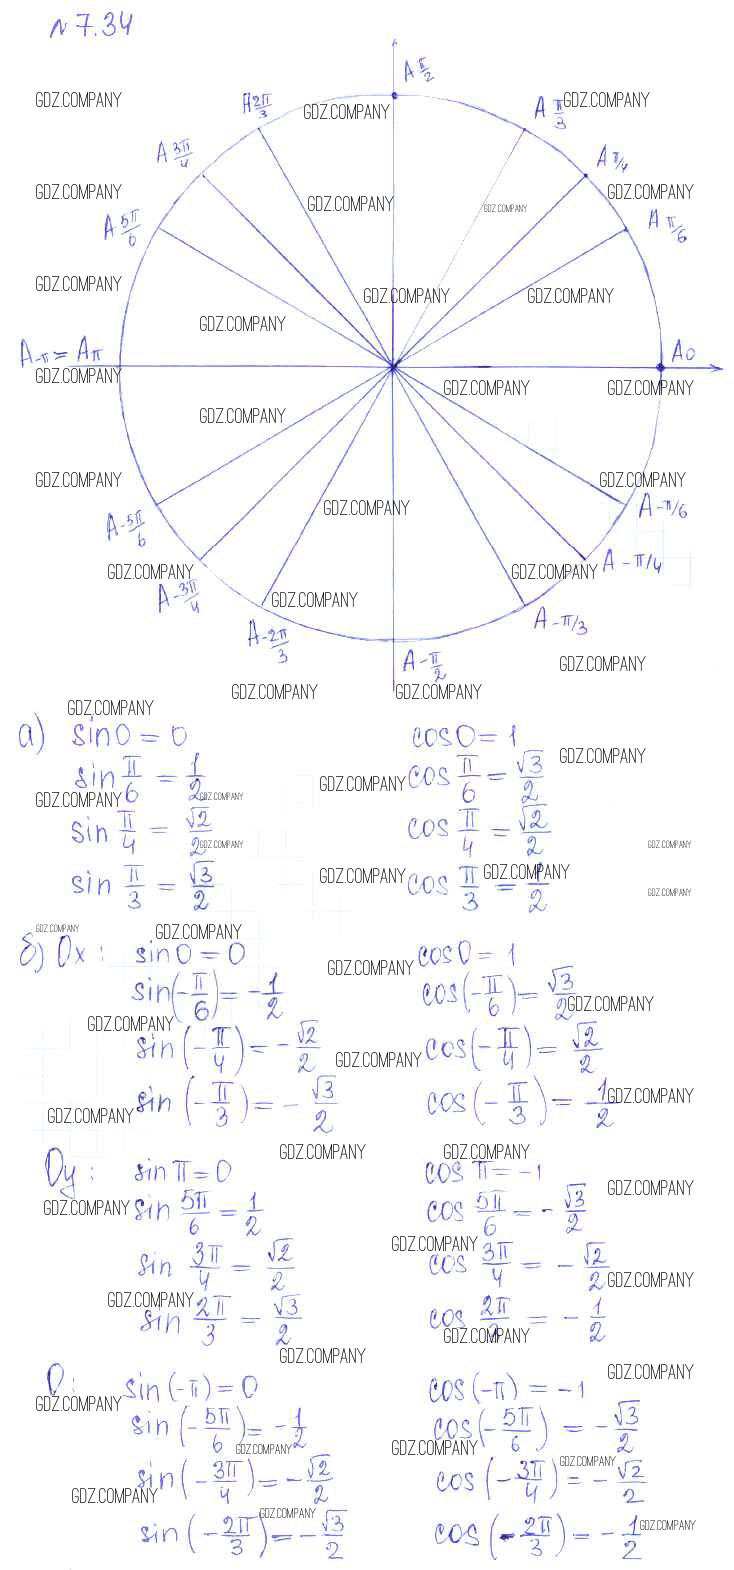 № 7.34
A π/2
A 2π/3
A π/3
A 3π/4
A π/4
A 5π/6
A π/6
A-π = Aπ
A0
A-5π/6
A-π/6
A-3π/4
A-π/4
A-2π/3
A-π/3
A-π/2
GDZ.COMPANY
а) sin 0 = 0 cos 0 = 1
sin π/6 = 1/2 cos π/6 = √3/2
sin π/4 = √2/2 cos π/4 = √2/2
sin π/3 = √3/2 cos π/3 = 1/2
б) Ox: sin 0 = 0 cos 0 = 1
sin(-π/6) = -1/2 cos(-π/6) = √3/2
sin(-π/4) = -√2/2 cos(-π/4) = √2/2
sin(-π/3) = -√3/2 cos(-π/3) = 1/2
Oy: sin π = 0 cos π = -1
sin 5π/6 = 1/2 cos 5π/6 = -√3/2
sin 3π/4 = √2/2 cos 3π/4 = -√2/2
sin 2π/3 = √3/2 cos 2π/3 = -1/2
O: sin(-π) = 0 cos(-π) = -1
sin(-5π/6) = -1/2 cos(-5π/6) = -√3/2
sin(-3π/4) = -√2/2 cos(-3π/4) = -√2/2
sin(-2π/3) = -√3/2 cos(-2π/3) = -1/2